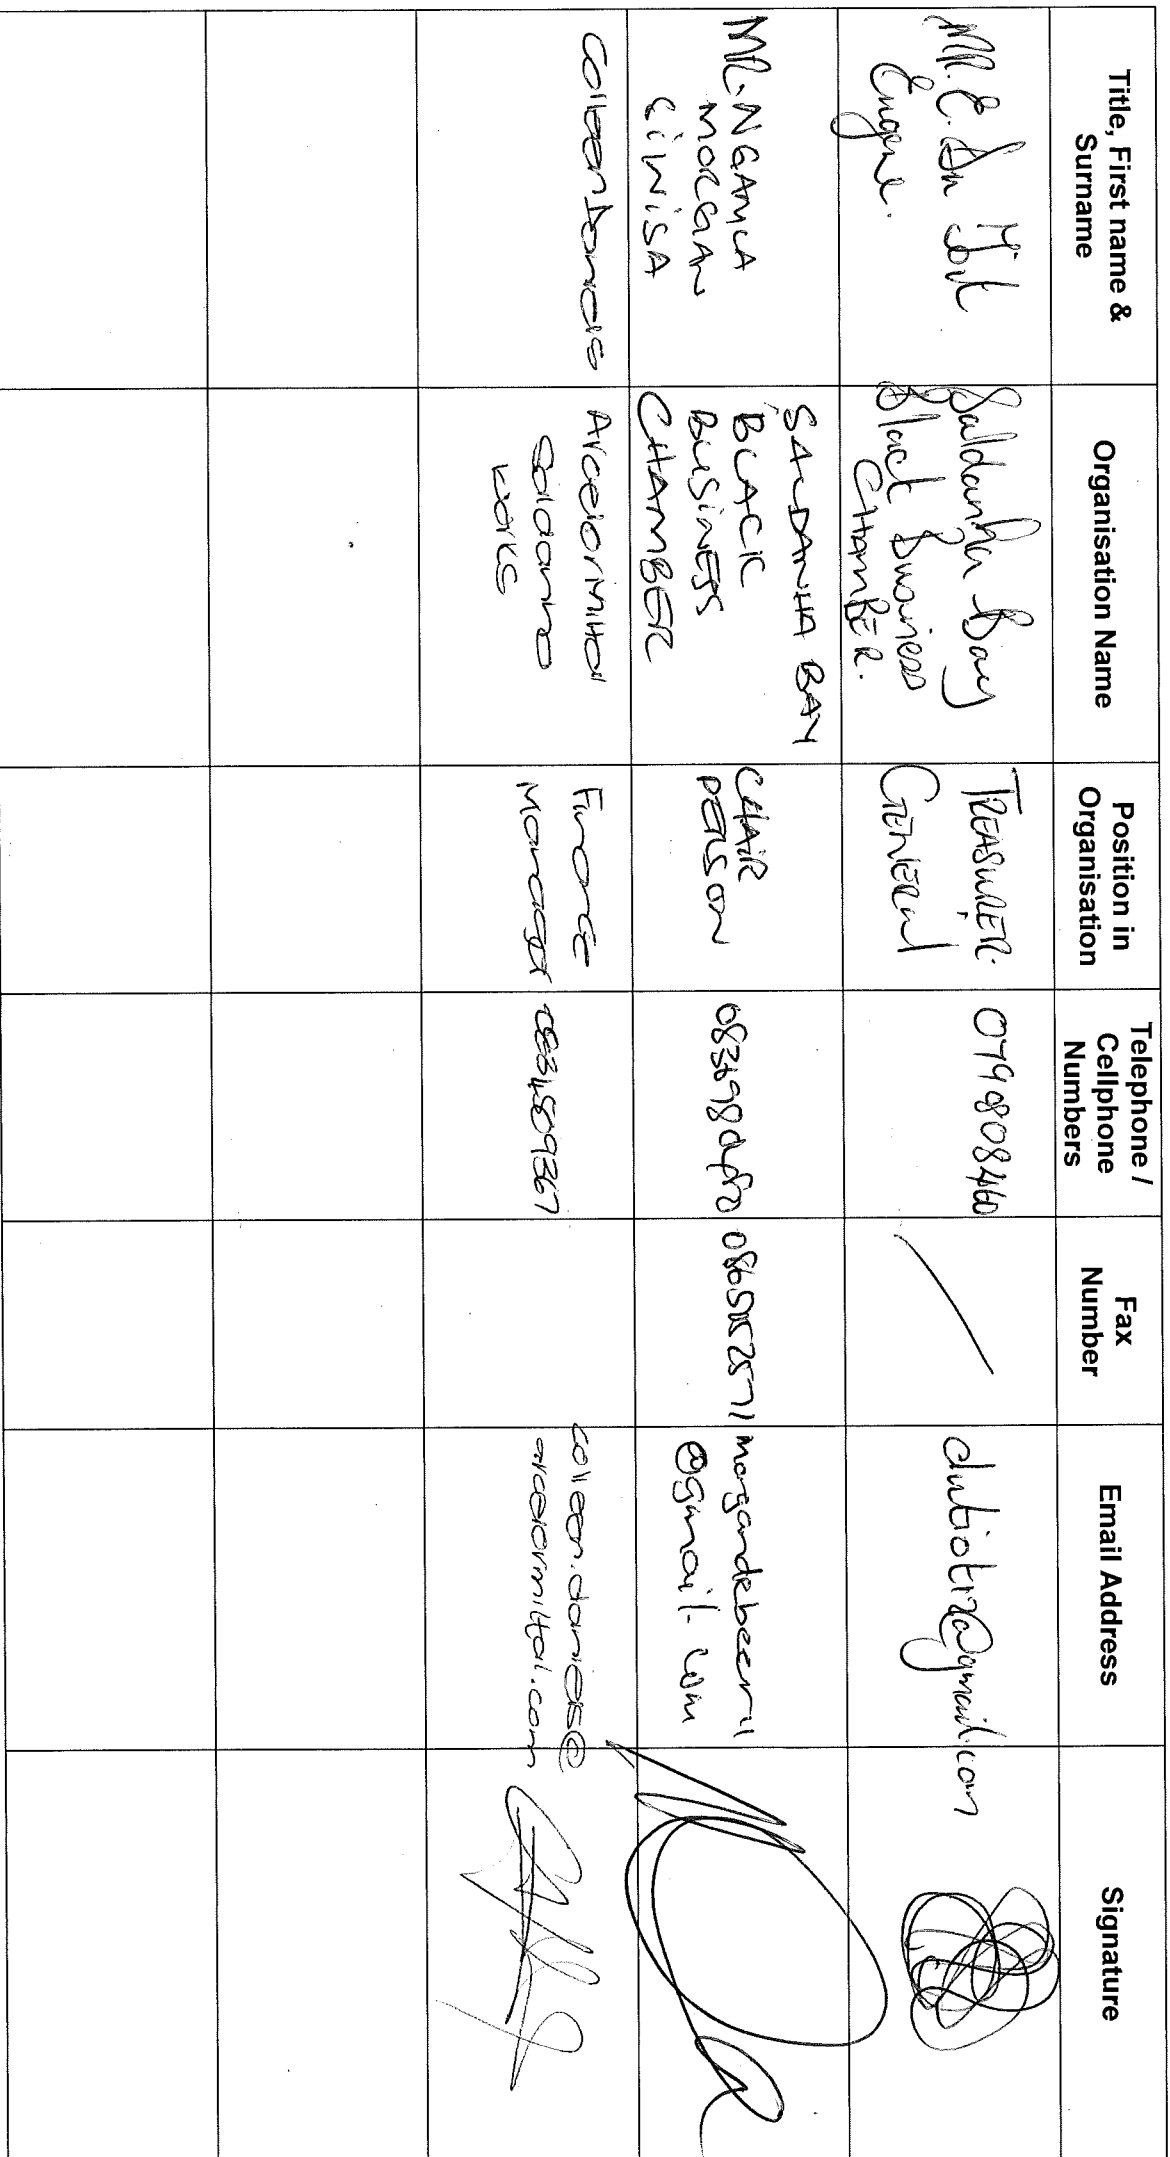 Title, First name &
Surname
Organisation Name
Position in
Organisation
Telephone /
Cellphone
Numbers
Fax
Number
Email Address
Signature
MR. E. Du Toit
Eugene.
Saldanha Bay
Black Business
CHAMBER.
TREASURER-
GENERAL
0798084160
MR. NGAMLA
MORGAN
SALDANHA BAY
BLACK
BUSINESS
CHAMBER
CHAIR
PERSON
0865052571
@gmail.com
Colleen Daniels
ArcelorMittal
Saldanha
Works
Finance
Manager
colleen.daniels@
arcelormittal.com